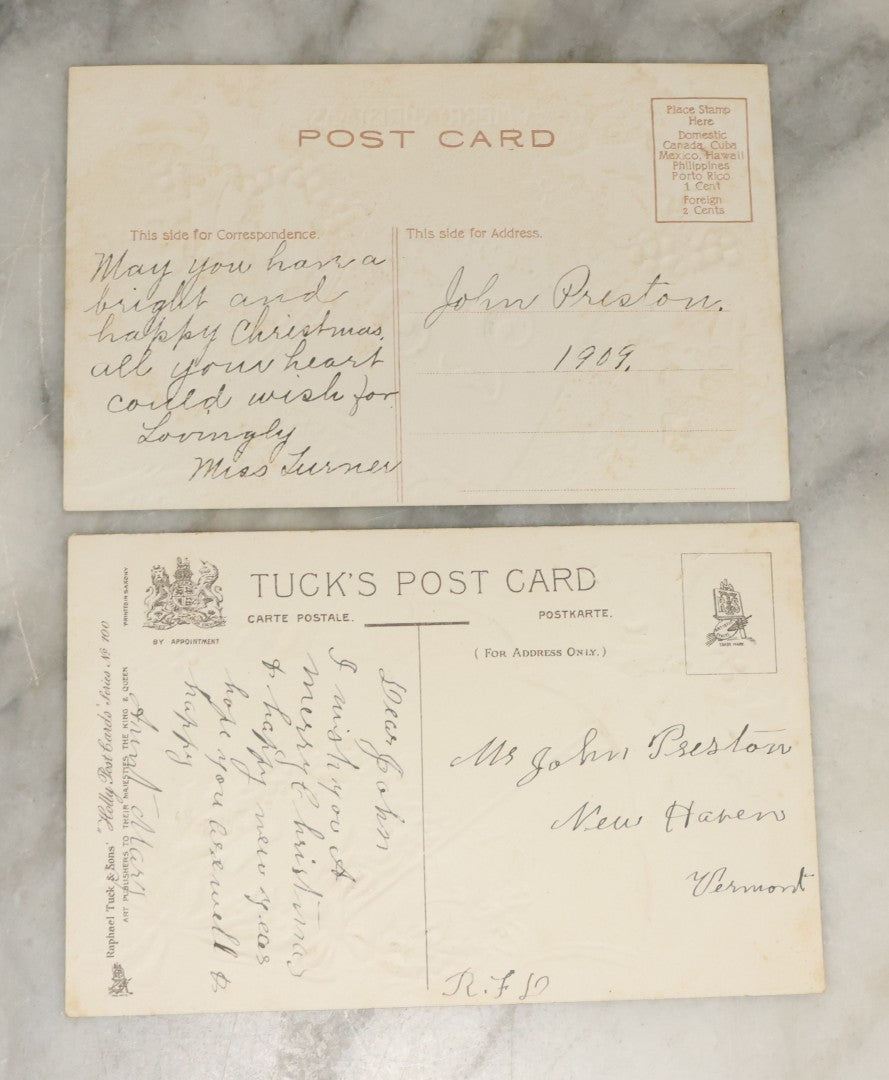 POST CARD
Place Stamp
Here
Domestic
Canada, Cuba
Mexico, Hawaii
Philippines
Porto Rico
1 Cent
Foreign
2 Cents
This side for Correspondence.
This side for Address.
May you have a
bright and
happy Christmas,
all your heart
could wish for
Lovingly
Miss Turner
John Preston.
1909.
TUCK'S POST CARD
CARTE POSTALE.
POSTKARTE.
(FOR ADDRESS ONLY.)
BY APPOINTMENT
TRADE MARK
PRINTED IN SAXONY
Raphael Tuck & Sons' "Holly Post Cards" Series No 100
ART PUBLISHERS TO THEIR MAJESTIES THE KING & QUEEN
Dear John
I wish you A
merry Christmas
& happy new year
hope you are well &
happy
Aunt Mary
Mr John Preston
New Haven
Vermont
R.F.D